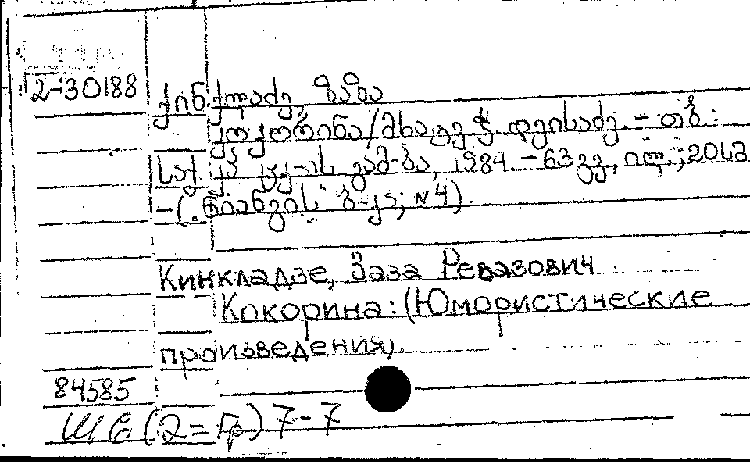 2-30188
ქინქლაძე, ზაზა
კოკორინა/მხატვ. ჭ. დვისაძე. – თბ.:
საქ. კპ ცკ-ის გამ-ბა, 1984. – 63 გვ., ილ.; 20სმ.
– („ნიანგის“ ბ-კა; №4).
Кинкладзе, Заза Ревазович
Кокорина: (Юмористические
произведения).
84585
Ш6(2=Гр)7-7